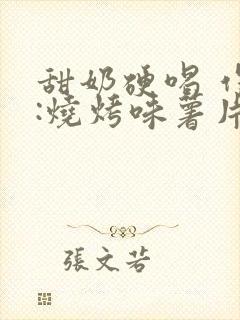 甜奶硬唱
:燒烤味薯片
張文若